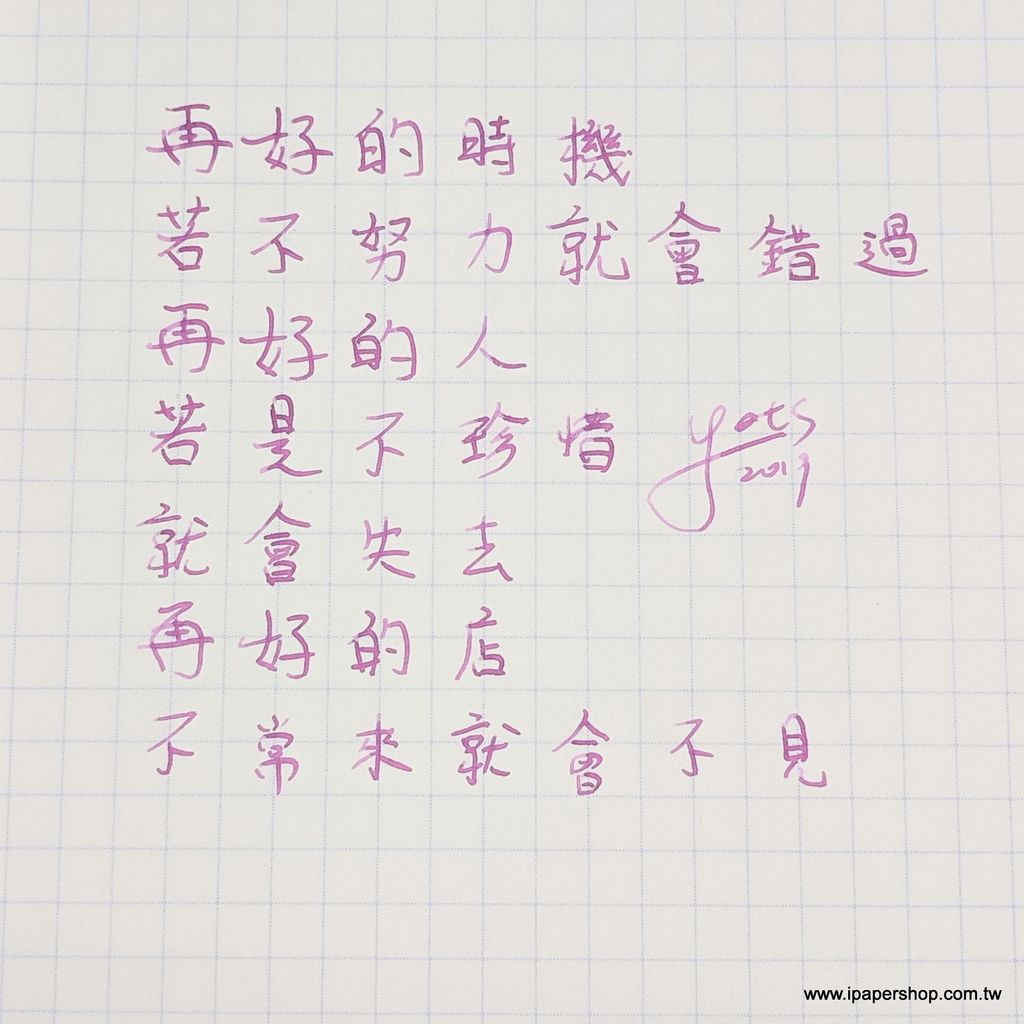 再好的時機
若不努力就會錯過
再好的人
若是不珍惜
yats
2019
就會失去
再好的店
不常來就會不見
www.ipapershop.com.tw